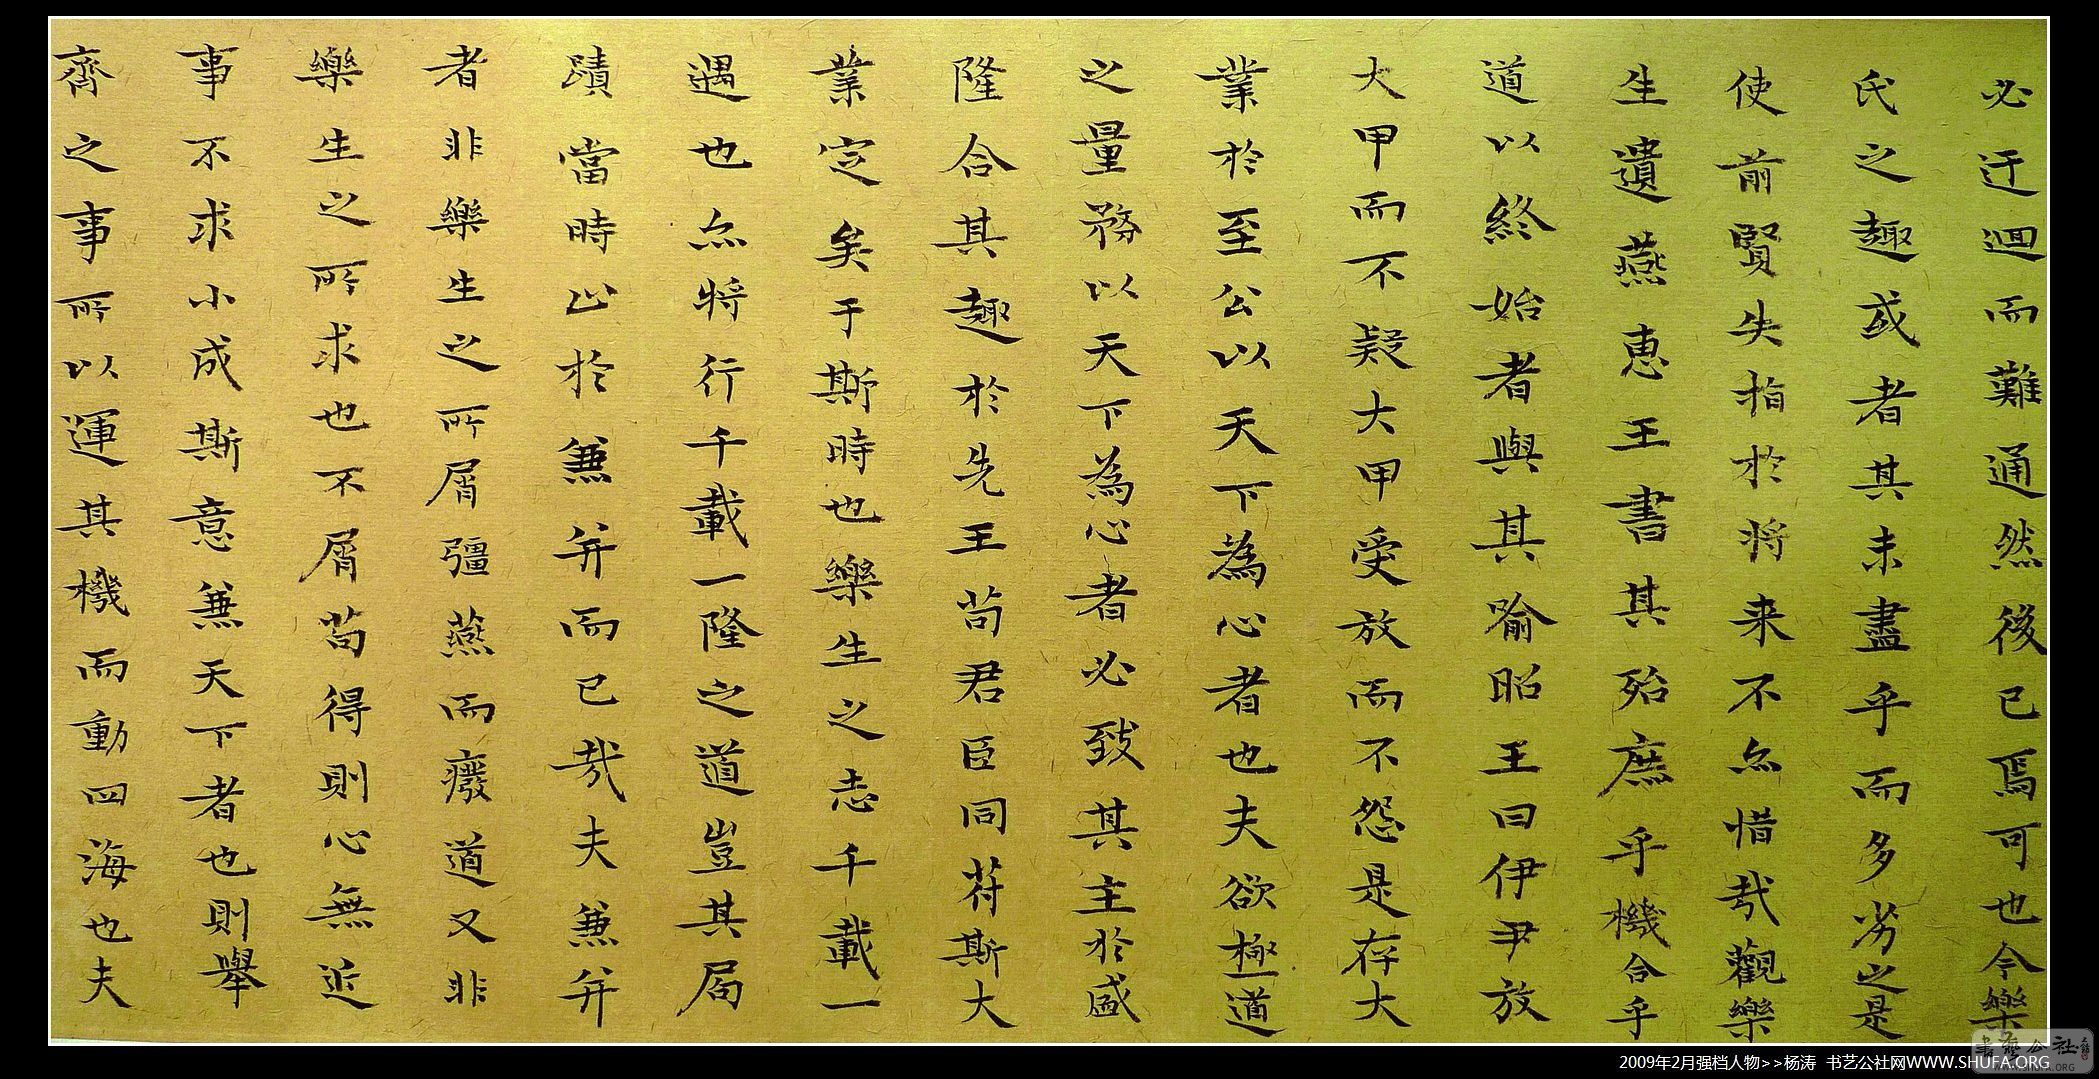 必迂迴而難通然後已焉可也令樂
氏之趣或者其未盡乎而多劣之是
使前賢失指於将来不亦惜哉觀樂
生遺燕惠王書其殆庶乎機合乎
道以終始者與其喻昭王曰伊尹放
大甲而不疑大甲受放而不怨是存大
業於至公以天下為心者也夫欲極道
之量務以天下為心者必致其主於盛
隆合其趣於先王苟君臣同苻斯大
業定矣于斯時也樂生之志千載一
遇也亦将行千載一隆之道豈其局
蹟當時止於兼并而已哉夫兼并
者非樂生之所屑彊燕而癈道又非
樂生之所求也不屑苟得則心無近
事不求小成斯意兼天下者也則舉
齊之事所以運其機而動四海也夫
2009年2月强档人物>>杨涛 书艺公社网WWW.SHUFA.ORG
書藝公社
WWW.SHUFA.ORG